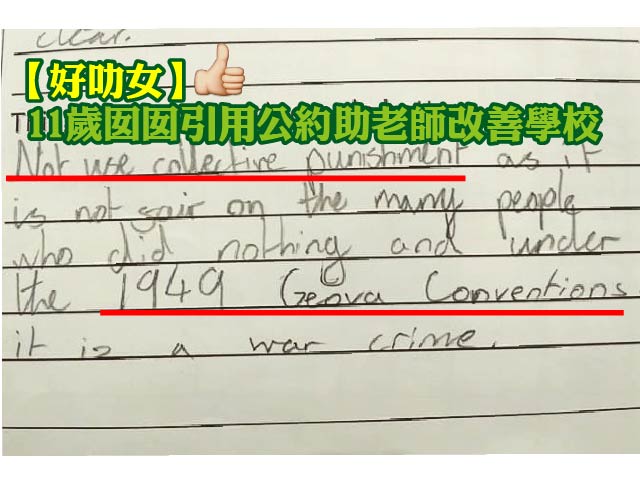 clear.
【好叻女】
11歲囡囡引用公約助老師改善學校
T
Not use collective punishment as it
is not fair on the many people
who did nothing and under
the 1949 Geneva Conventions
it is a war crime.